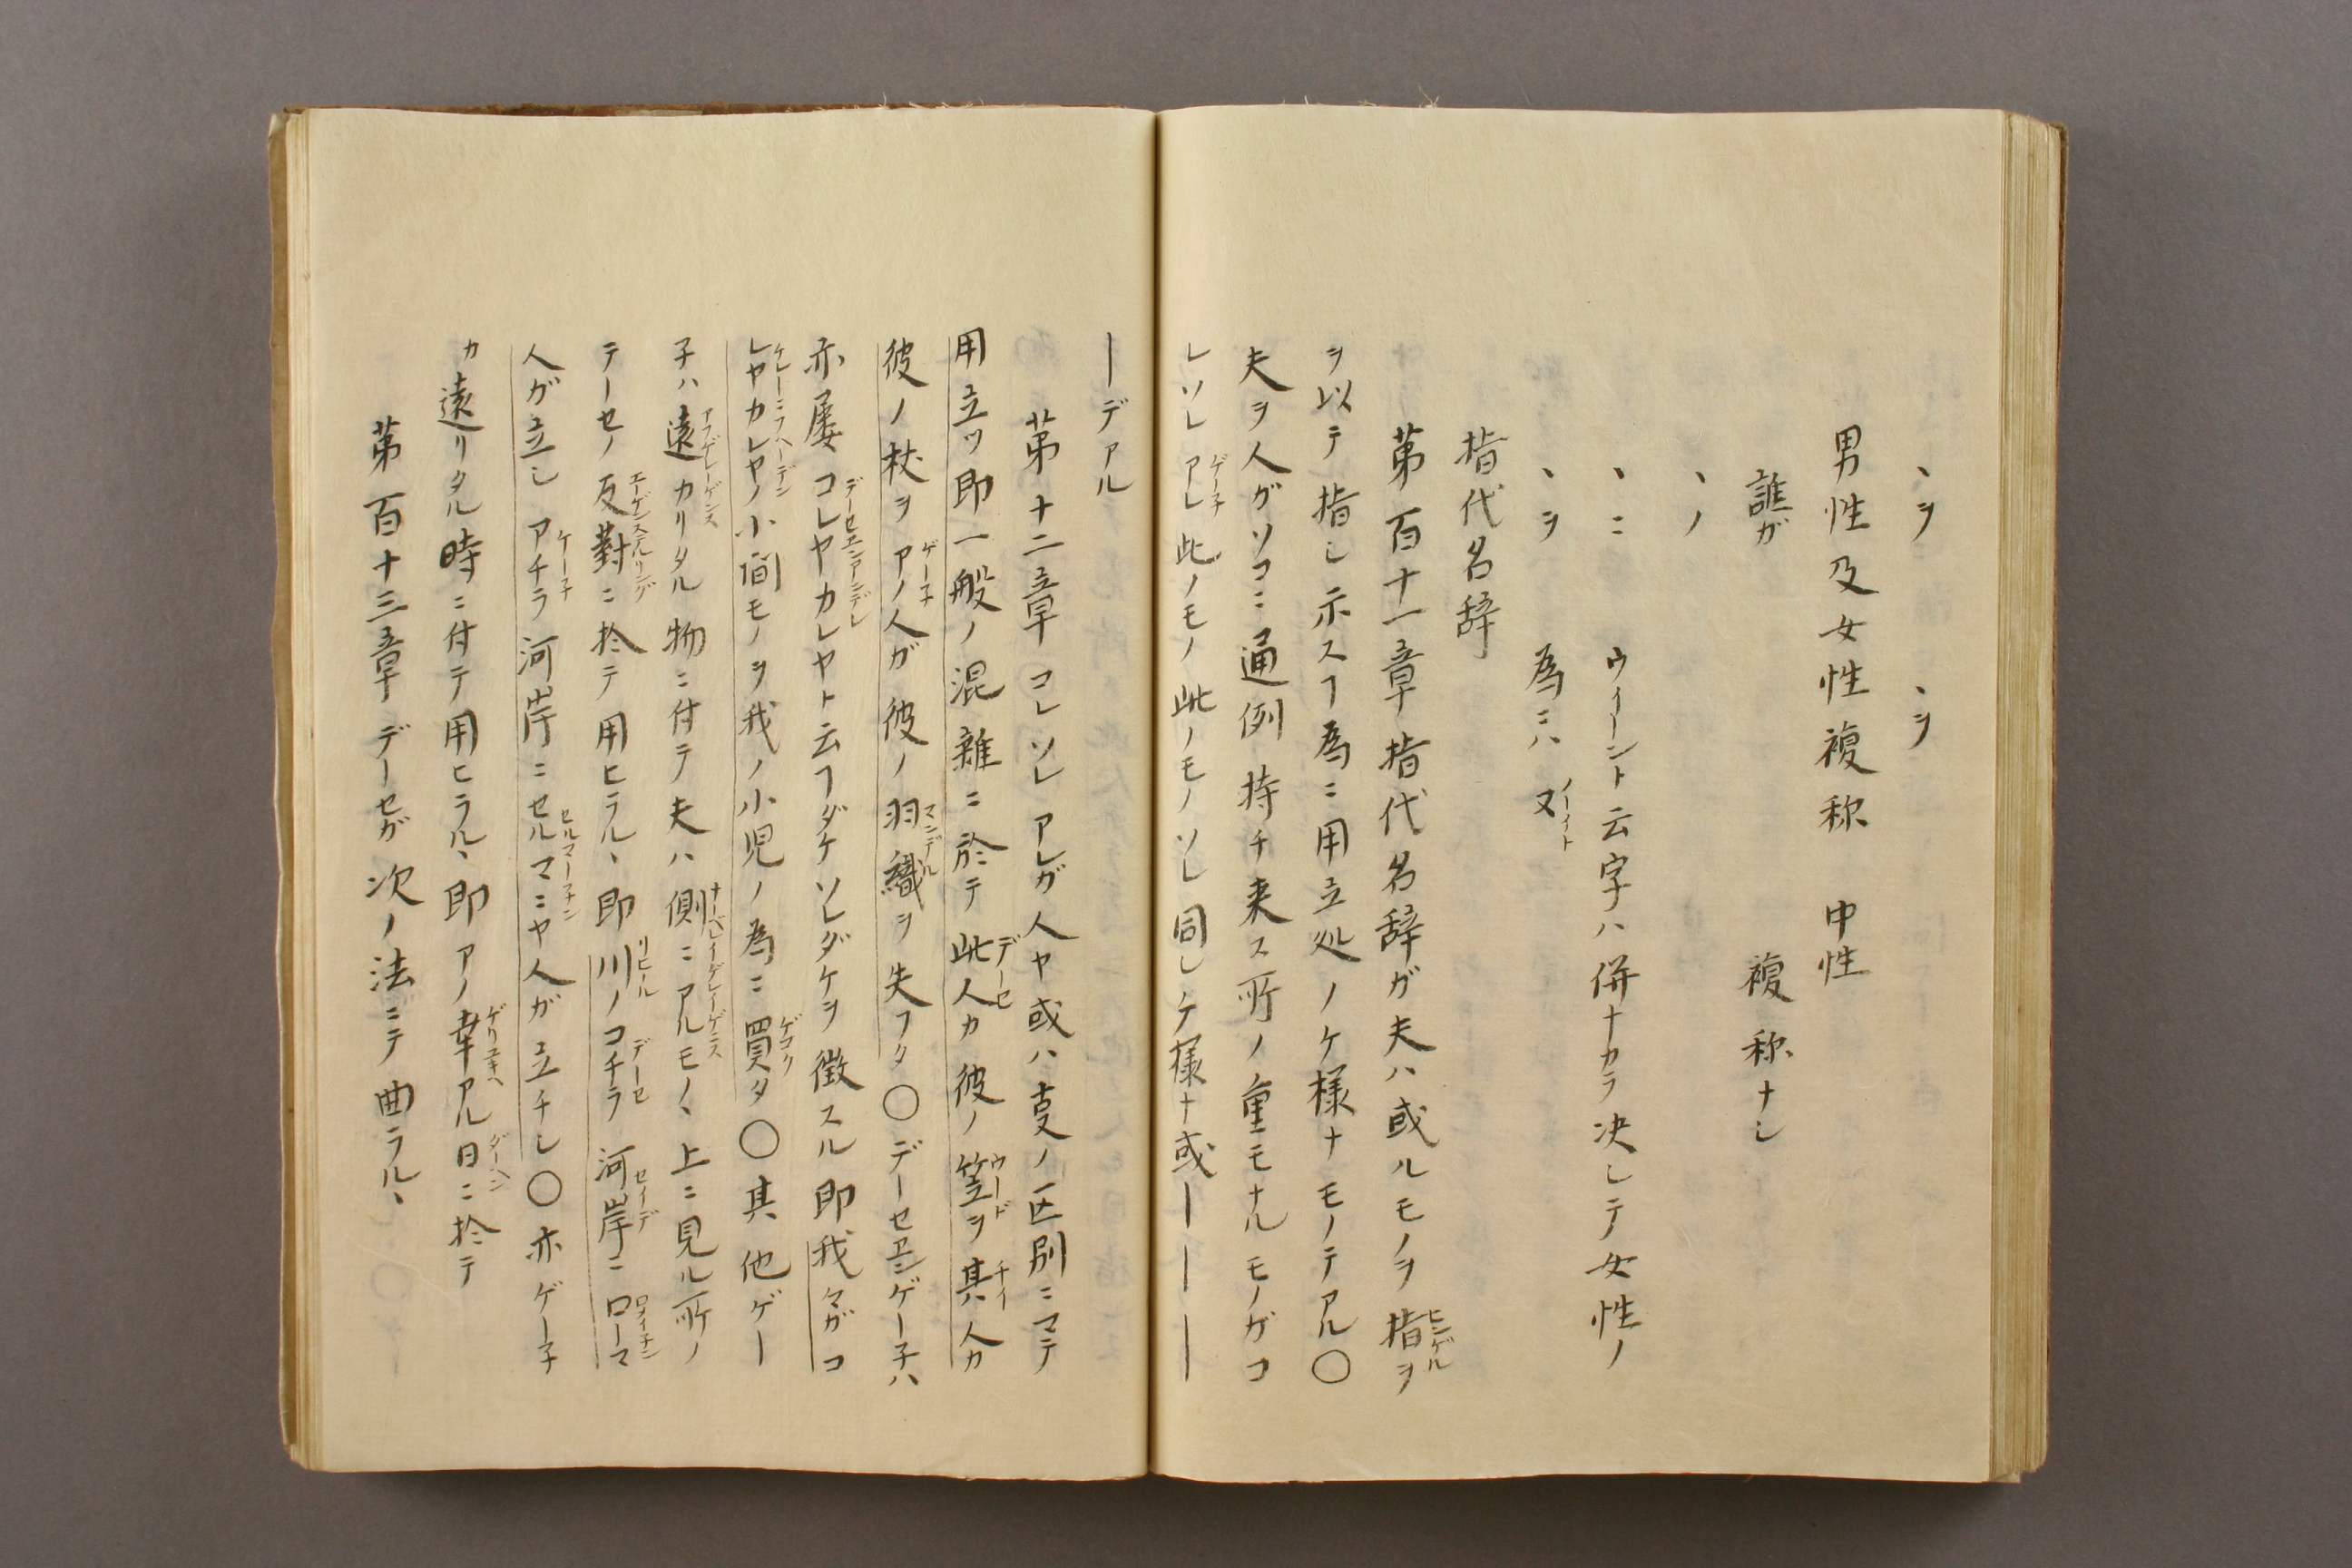 、ヲ　、ヲ
男性及女性複称　中性
誰ガ　複称ナシ
、ノ
、ニ　ウイーント云字ハ併ナカラ決シテ女性ノ
、ヲ　為ニハヌ
ノーイト
指代名辞
第百十一章指代名辞ガ夫ハ或ルモノヲ指ヲ
ヒンゲル
ヲ以テ指シ示スヿ為ニ用立処ノケ様ナモノテアル〇
夫ヲ人ガソコニ通例持チ来ス所ノ重モナルモノガコ
レソレアレ此ノモノ此ノモノソレ同シケ様ナ或ーーー
ゲー子
ーデアル
第十二章コレソレアレガ人ヤ或ハ㕝ノ区別ニマテ
用立ツ即一般ノ混雑ニ於テ此人カ彼ノ笠ヲ其人カ
デーセ　ウード　チイ
彼ノ杖ヲアノ人ガ彼ノ羽織ヲ失フタ〇デーセエンゲー子ハ
ゲー子　マンデル
亦屡コレヤカレヤト云フダケソレダケヲ徴スル即我々ガコ
デーセエンアンデレ
レヤカレヤノ小間モノヲ我ノ小児ノ為ニ買タ〇其他ゲー
ケレーニフヘーデン　ゲコク
子ハ遠カリタル物ニ付テ夫ハ側ニアルモノ、上ニ見ル所ノ
アフゲレーゲンス　ナーベレイゲレーゲンス
テーセノ反對ニ於テ用ヒラル、即川ノコチラ河岸ニローマ
エーゲンステルリング　リヒール　デーセ　セイデ　ロメイチン
人ガ立シアチラ河岸ニセルマニヤ人ガ立チシ〇亦ゲー子
ケー子　セルマーチン
カ遠リタル時ニ付テ用ヒラル、即アノ幸アル日ニ於テ
ゲリュキヘ　ダーヘン
第百十三章デーセガ次ノ法ニテ曲ラル、